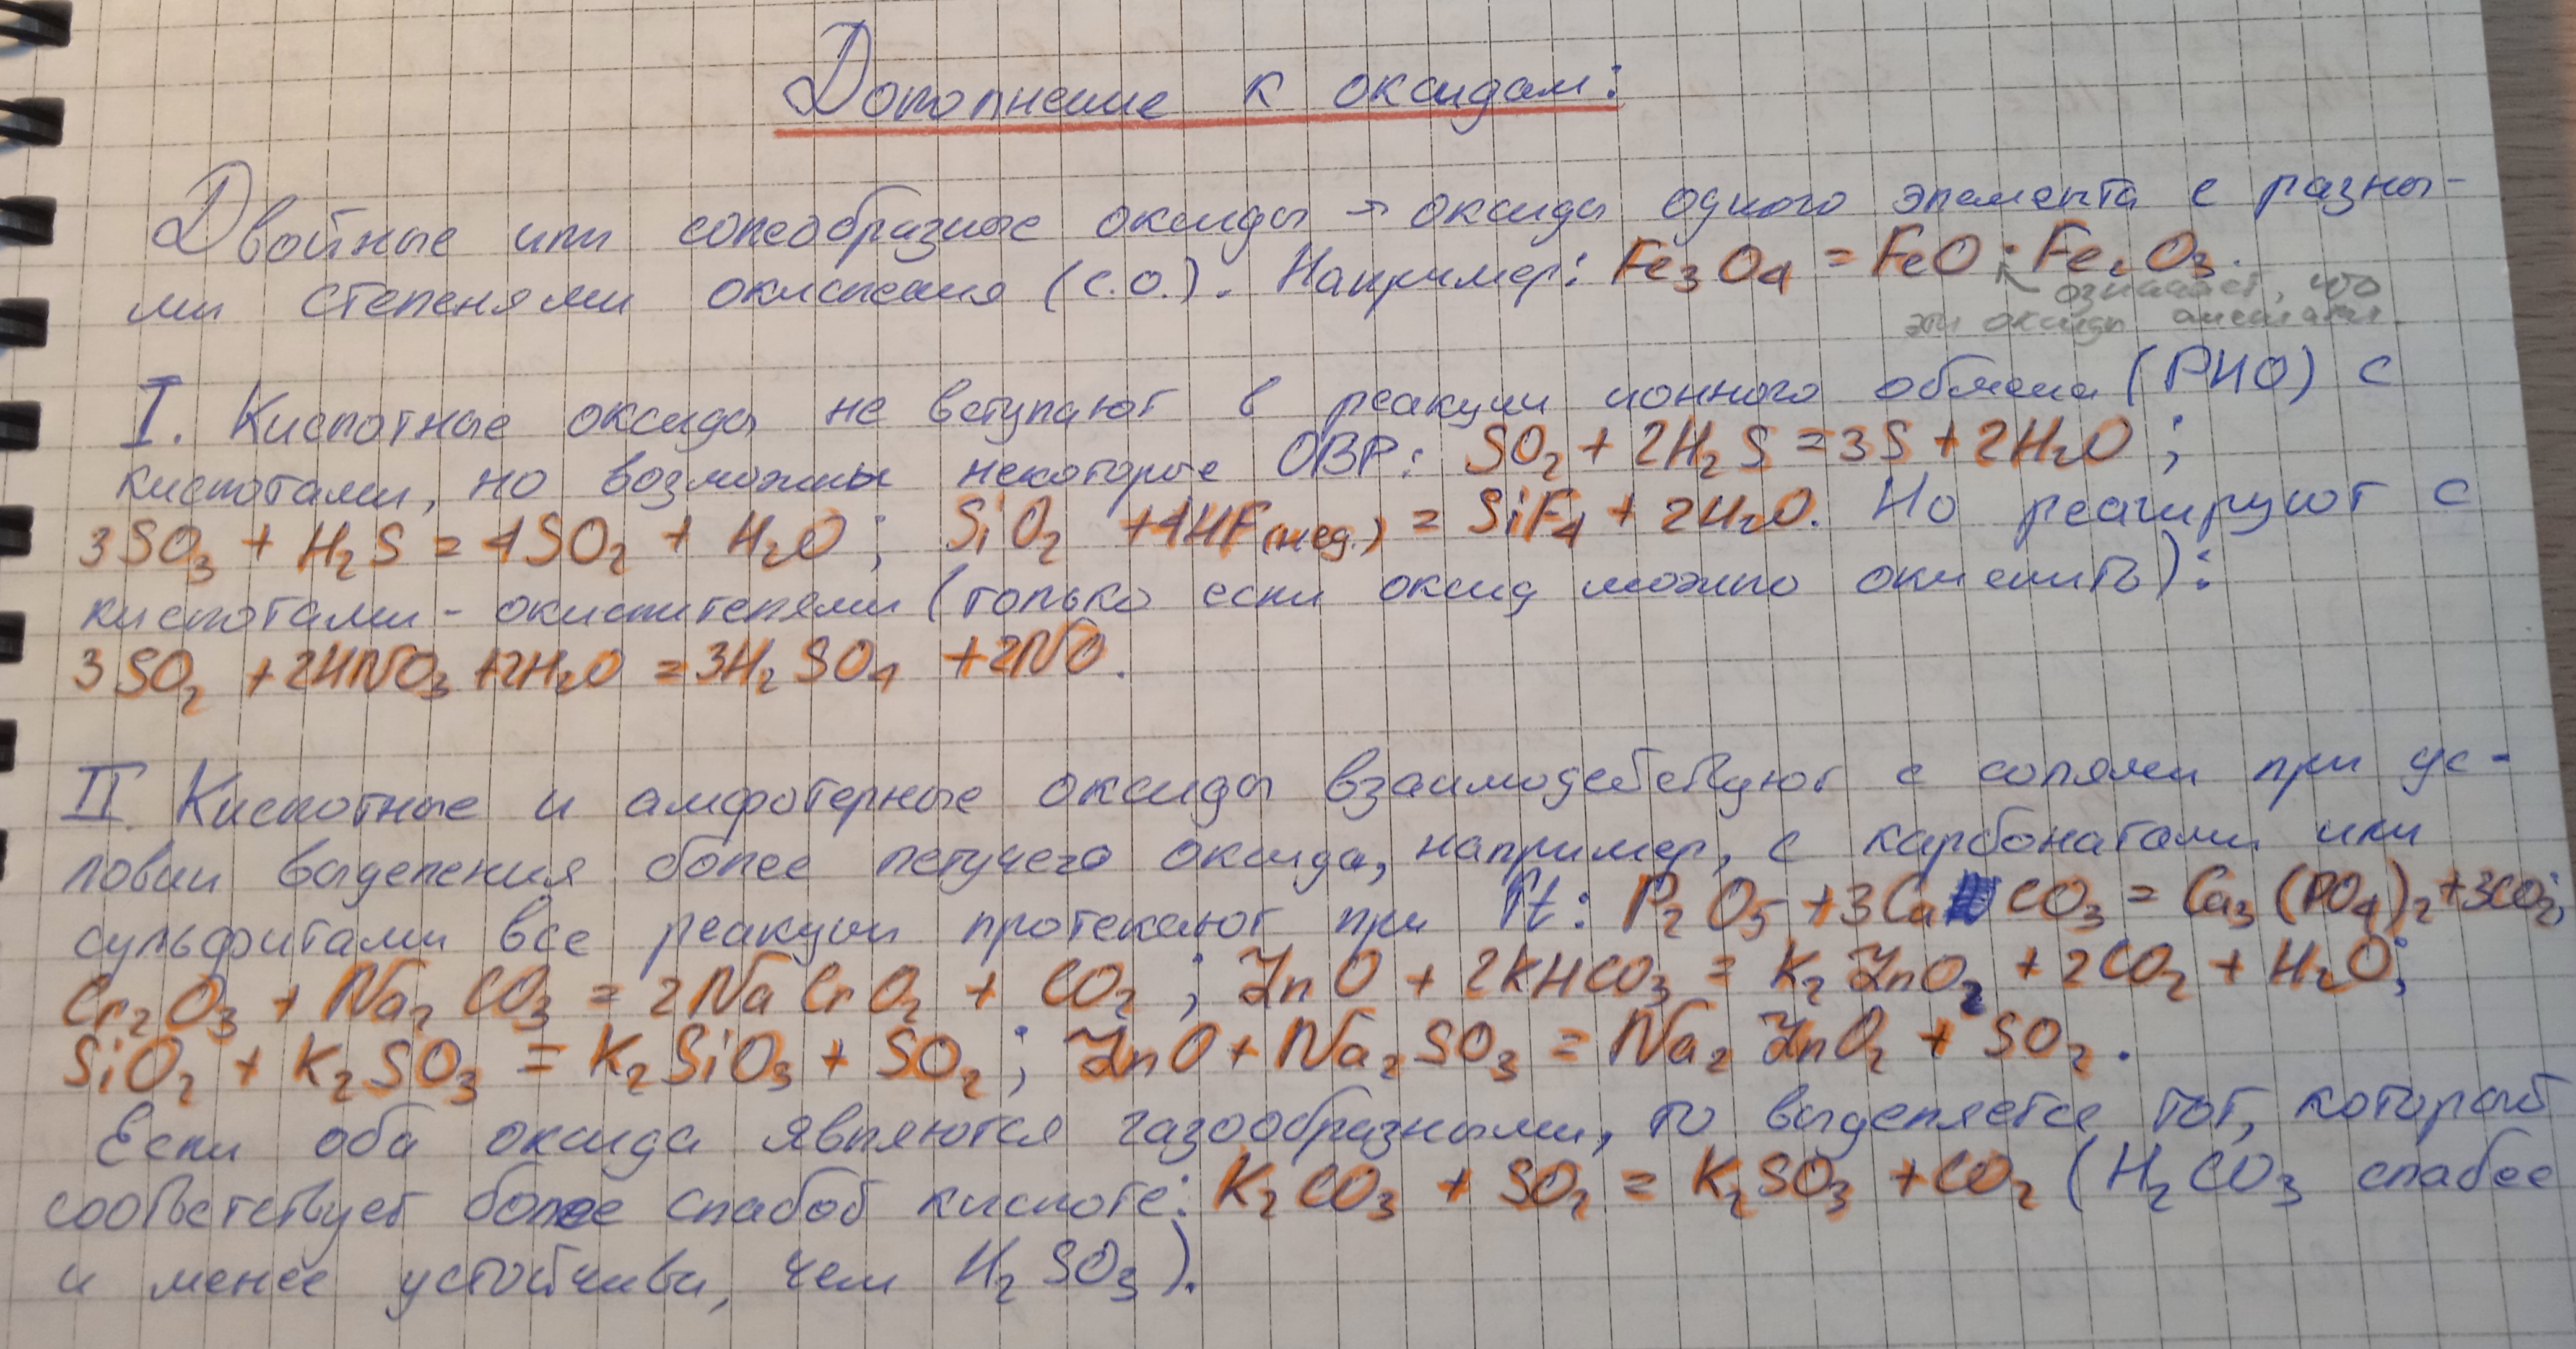 Дополнение к оксидам:
Двойные или солеобразные оксиды → оксиды одного элемента с разны-
ми степенями окисления (с.о.). Например: Fe₃O₄ = FeO · Fe₂O₃.
означает, что
эти оксиды
I. Кислотные оксиды не вступают в реакции ионного обмена (РИО) с
кислотами, но возможны некоторые ОВР: SO₂ + 2H₂S = 3S + 2H₂O ;
3SO₃ + H₂S = 4SO₂ + H₂O ; SiO₂ + 4HF(нед.) = SiF₄ + 2H₂O. Но реагируют с
кислотами - окислителями (только если оксид можно окислить):
3SO₂ + 2HNO₃ + 2H₂O = 3H₂SO₄ + 2NO.
II Кислотные и амфотерные оксиды взаимодействуют с солями при ус-
ловии выделения более летучего оксида, например, с карбонатами или
сульфитами все реакции протекают при t: P₂O₅ + 3CaCO₃ = Ca₃(PO₄)₂ + 3CO₂;
Cr₂O₃ + Na₂CO₃ = 2NaCrO₂ + CO₂ ; ZnO + 2KHCO₃ = K₂ZnO₂ + 2CO₂ + H₂O;
SiO₂ + K₂SO₃ = K₂SiO₃ + SO₂ ; ZnO + Na₂SO₃ = Na₂ZnO₂ + SO₂.
Если оба оксида являются газообразными, то выделяется тот, который
соответствует более слабой кислоте: K₂CO₃ + SO₂ = K₂SO₃ + CO₂ (H₂CO₃ слабее
и менее устойчива, чем H₂SO₃).